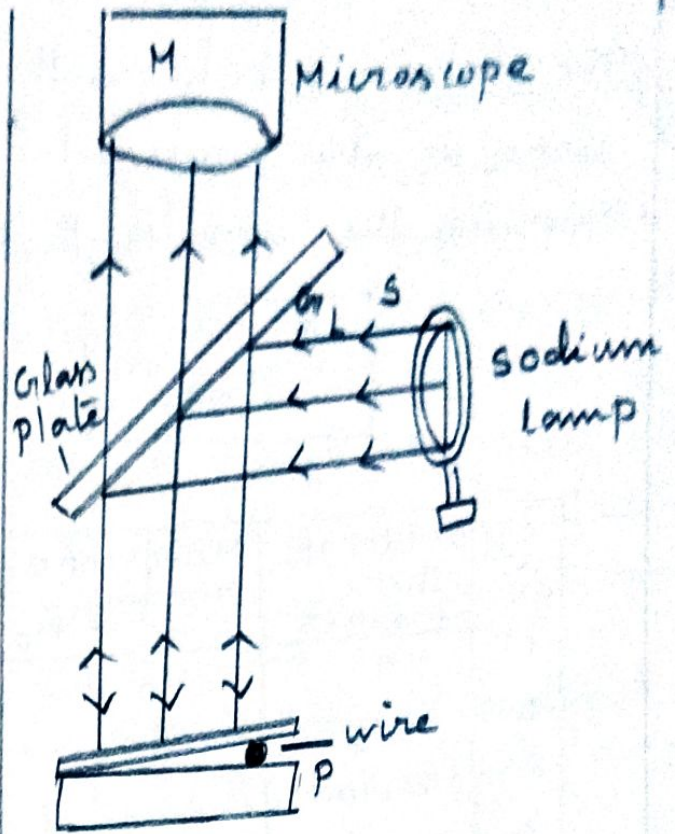 M
Microscope
G L S
Glass
plate
Sodium
lamp
wire
P